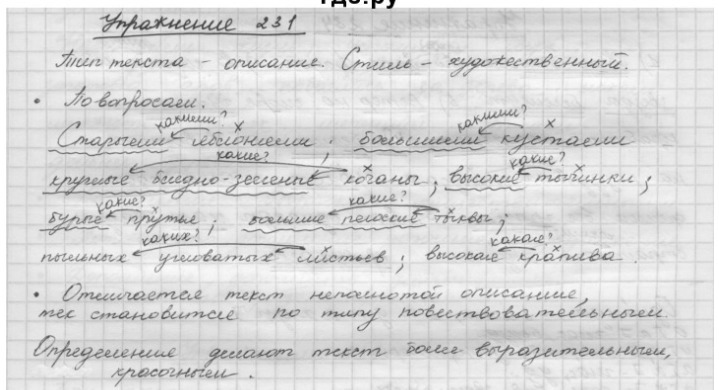 где.ру
Упражнение 231
Тип текста – описание. Стиль – художественный.
• По вопросам.
какими? какими?
Старыми яблонями; большими кустами
какие? какие?
круглые бледно-зеленые кочаны; высокие тычинки;
какие? какие?
бурые прутья; большие плоские тыквы;
каких? какая?
пыльных угловатых листьев; высокая крапива.
• Отличается текст неполнотой описание,
тек становится по типу повествовательным.
Определение делают текст более выразительным,
красочным.